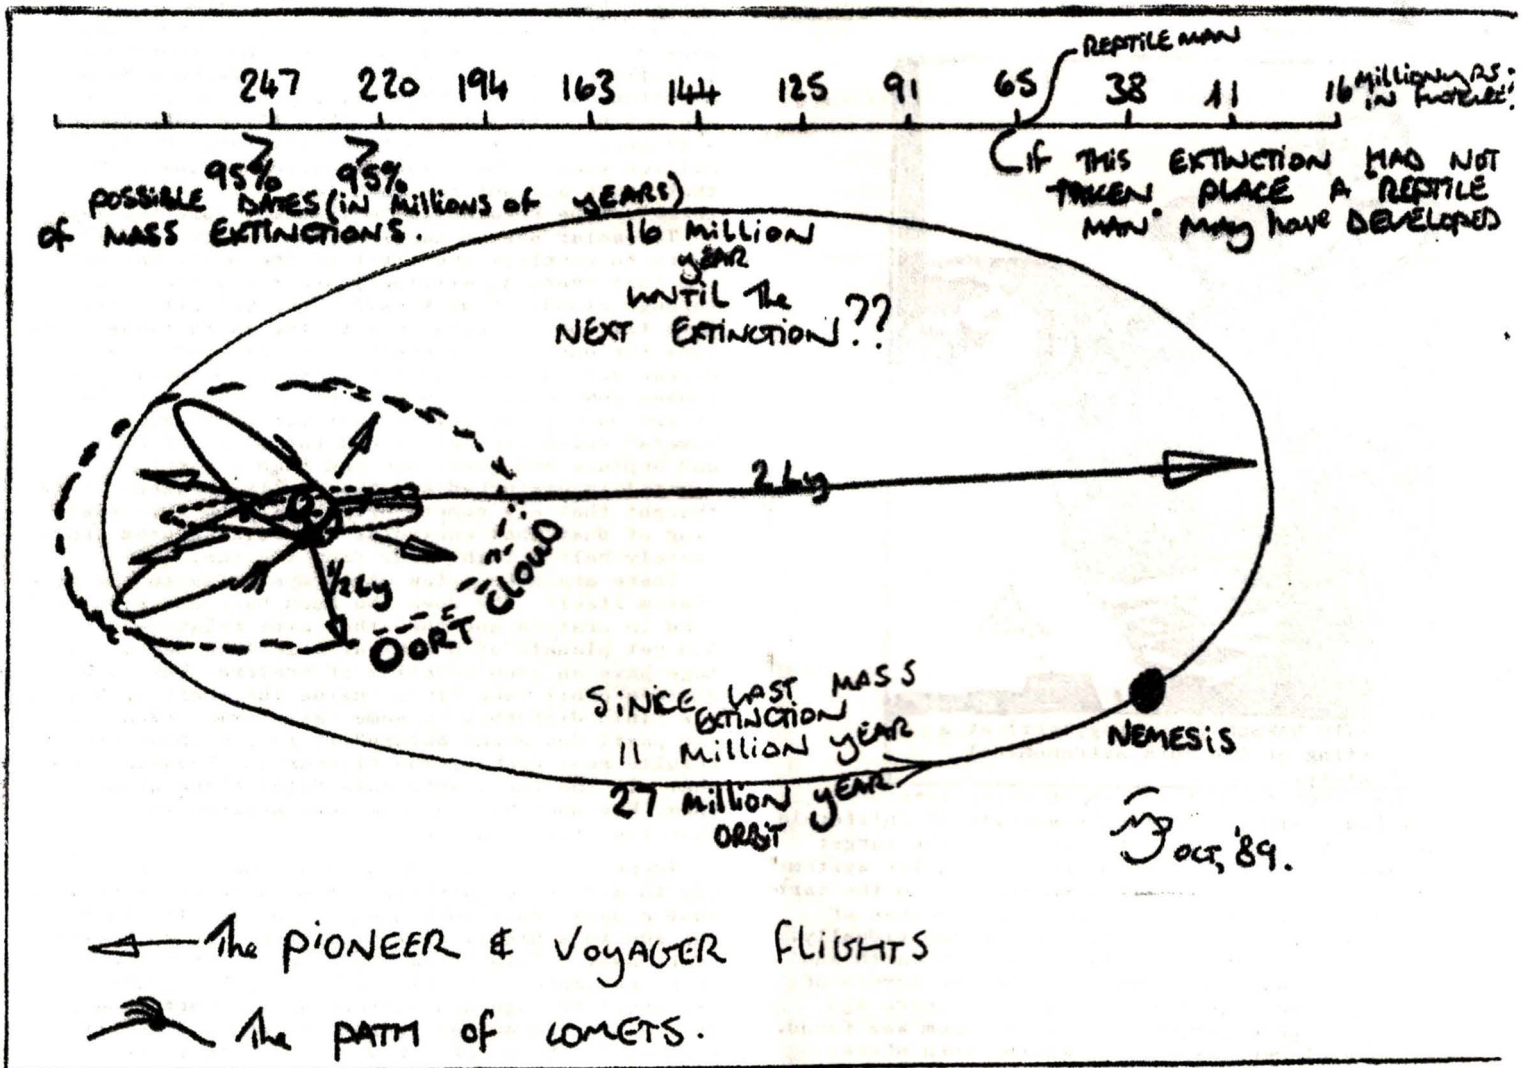 REPTILE MAN
247 220 194 163 144 125 91 65 38 11 16 Million yrs. in future!
> >
95% 95%
POSSIBLE DATES (iN Millions of yEARS)
of MASS EXTINCTIONS.
(if THIS EXTINCTION HAD NOT
TAKEN PLACE A REPTILE
MAN" May have DEVELOPED
16 Million
yEAR
UNTiL The
NEXT EXTINCTION??
2 Ly
1/2 Ly
OORT CLOUD
SiNCE LAST MASS
EXTINCTION
11 Million yEAR
27 Million yEAR
ORBiT
NEMESiS
OCT, '89.
The PiONEER & VoyAGER fLiGHTS
The PATH of COMETS.